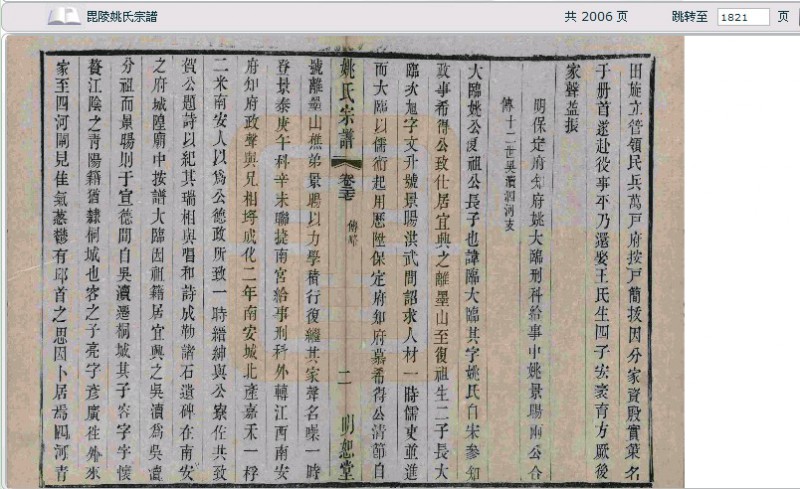 毘陵姚氏宗譜
共 2006 页
跳转至 1821 页
田施立管領民兵萬戸府按戸簡拔因分家資殷實策名
于册首遂赴役事平乃還娶王氏生四子
方厥後
家聲益振
明保定府知府姚大臨刑科給事中姚景暘兩公合
傳十二世吳瀆
大臨姚公復祖公長子也諱臨大臨其字姚氏自宋參知
政事希得公致仕居宜興之離墨山至復祖生二子長大
臨次旭字文升號景陽洪武間詔求人材一時儒吏並進
而大臨以儒術起用歷陞保定府知府慕希得公清節自
姚氏宗譜 卷 傳 二 明恕堂
號離墨山樵弟景暘以力學積行復纘其家聲名噪一時
登景泰庚午科辛未聯捷南宮給事刑科外轉江西南安
府知府政聲與兄相埒成化二年南安城北產嘉禾一稃
二米南安人以爲公德政所致一時縉紳與公寮佐共致
賀公題詩以紀其瑞相與唱和詩成勒諸石遺碑在南安
之府城隍廟中按譜大臨因祖籍居宜興之吳瀆爲吳瀆
分祖而景暘則于宣德間自吳瀆遷桐城其子容字宇懷
贅江陰之青陽籍猶隸桐城也容之子亮字彥廣往外來
家至四河聞見佳氣葱鬱有邱首之思因卜居焉四河青